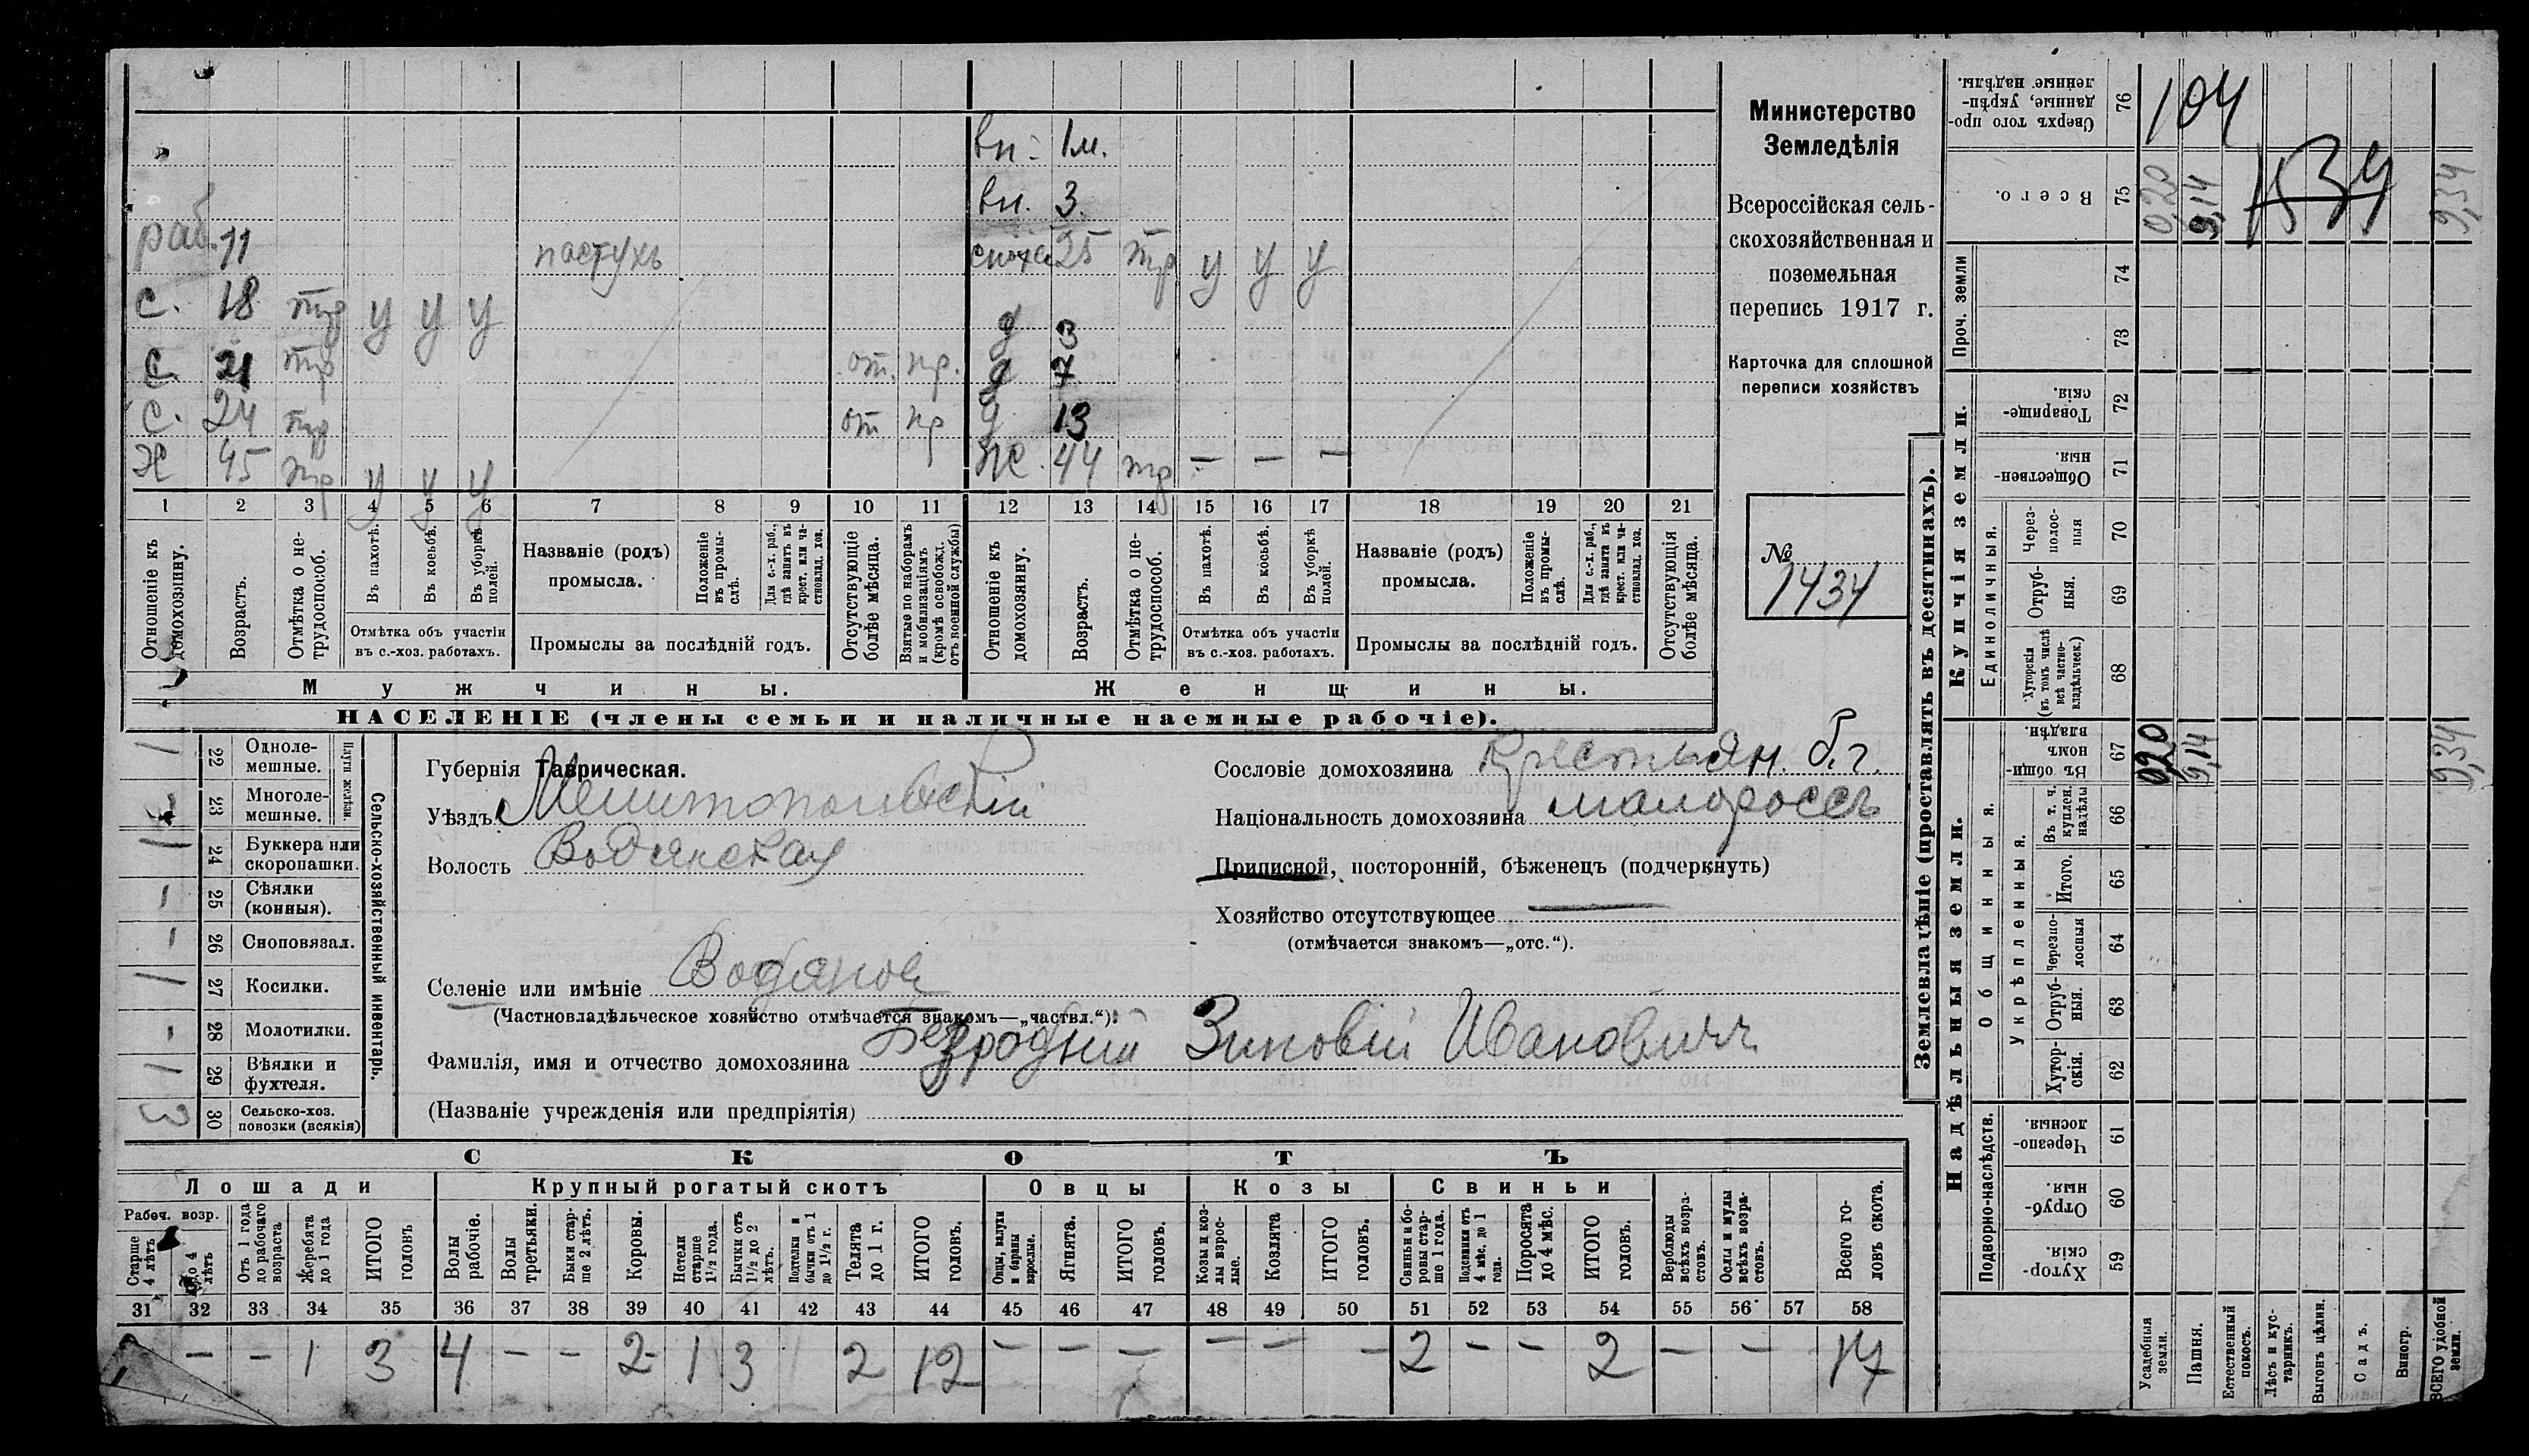 вн. 1 м.
вн. 3
раб. 11 пастухъ сноха 25 тр у у у
с. 18 тр у у у д 3
с. 21 тр от. пр. д 7
с. 24 тр от пр д 13
х 45 тр у у у ж. 44 тр — — —
1 2 3 4 5 6 7 8 9 10 11 12 13 14 15 16 17 18 19 20 21
Отношеніе къ домохозяину.
Возрастъ.
Отмѣтка о не-трудоспособ.
Въ пахотѣ.
Въ косьбѣ.
Въ уборкѣ полей.
Отмѣтка объ участіи
въ с.-хоз. работахъ.
Названіе (родъ)
промысла.
Положеніе въ промы-слѣ.
Для с.-х. раб., гдѣ занятъ въ крест. или ча-стновлад. хоз.
Промыслы за послѣдній годъ.
Отсутствующіе болѣе мѣсяца.
Взятые по наборамъ и мобилизаціямъ (кромѣ освобожд. отъ военной службы)
Отношеніе къ домохозяину.
Возрастъ.
Отмѣтка о не-трудоспособ.
Въ пахотѣ.
Въ косьбѣ.
Въ уборкѣ полей.
Отмѣтка объ участіи
въ с.-хоз. работахъ.
Названіе (родъ)
промысла.
Положеніе въ промы-слѣ.
Для с.-х. раб., гдѣ занята въ крест. или ча-стновлад. хоз.
Промыслы за послѣдній годъ.
Отсутствующія болѣе мѣсяца.
Мужчины. Женщины.
НАСЕЛЕНІЕ (члены семьи и наличные наемные рабочіе).
Министерство
Земледѣлія
Всероссійская сель-
скохозяйственная и
поземельная
перепись 1917 г.
Карточка для сплошной
переписи хозяйствъ
№
1434
Сельско-хозяйственный инвентарь.
Плуги желѣзн.
1 22 Одноле-мешные.
23 Многоле-мешные.
1 24 Буккера или скоропашки.
1 25 Сѣялки (конныя).
1 26 Сноповязал.
1 27 Косилки.
- 28 Молотилки.
1 29 Вѣялки и фухтеля.
3 30 Сельско-хоз. повозки (всякія)
Губернія Таврическая.
Уѣздъ Мелитопольскій
Волость Водянская
Селеніе или имѣніе Водяное
(Частновладѣльческое хозяйство отмѣчается знакомъ—„частвл.“).
Фамилія, имя и отчество домохозяина Безродній Зиновій Ивановичъ
(Названіе учрежденія или предпріятія)
Сословіе домохозяина Крестьян. б. г.
Національность домохозяина малороссъ
Приписной, посторонній, бѣженецъ (подчеркнуть)
Хозяйство отсутствующее —
(отмѣчается знакомъ—„отс.“).
СКОТЪ
Лошади Крупный рогатый скотъ Овцы Козы Свиньи
Рабоч. возр.
Старше 4 лѣтъ
До 4 лѣтъ
Отъ 1 года до рабочаго возраста
Жеребята до 1 года
ИТОГО головъ
Волы рабочіе.
Волы третьяки.
Быки стар-ше 2 лѣтъ.
Коровы.
Нетели старше 1½ года.
Бычки отъ 1½ до 2 лѣтъ.
Подтелки и бычки отъ 1 до 1½ г.
Телята до 1 г.
ИТОГО головъ.
Овцы, валухи и бараны взрослые.
Ягнята.
ИТОГО головъ.
Козы и коз-лы взрос-лые.
Козлята
ИТОГО головъ.
Свиньи и бо-ровы стар-ше 1 года.
Подсвинки отъ 4 мѣс. до 1 года.
Поросята до 4 мѣс.
ИТОГО головъ.
Верблюды всѣхъ возра-стовъ.
Ослы и мулы всѣхъ возра-стовъ.
Всего го-ловъ скота.
31 32 33 34 35 36 37 38 39 40 41 42 43 44 45 46 47 48 49 50 51 52 53 54 55 56 57 58
— — 1 3 4 — — 2 1 3 2 12 — — — — — — 2 — — 2 — — 17
Землевладѣніе (проставлять въ десятинахъ).
Купчія земли.
Надѣльныя земли.
Проч. земли
Единоличныя.
Общинныя.
Укрѣпленныя.
Подворно-наслѣдств.
Сверхъ того про-данные, укрѣп-ленные надѣлы. 76 104
Всего. 75 0,20 9,14 1539 9,34
74
73
Товарище-скія. 72
Обществен-ныя. 71
Через-полос-ныя 70
Отруб-ныя. 69
Хуторскія (въ томъ числѣ всѣ частно-владѣльческ.) 68
Въ общи-номъ владѣн. 67 0,20 9,14 9,34
Въ т. ч. куплен. надѣлы 66
Итого. 65
Черезпо-лосныя 64
Отруб-ныя. 63
Хутор-скія. 62
Черезпо-лосныя. 61
Отруб-ныя. 60
Хутор-скія. 59
Усадебныя земли.
Пашня.
Естественный покосъ.
Лѣсъ и кус-тарникъ.
Выгонъ цѣлин.
Садъ.
Виногр.
ВСЕГО удобной земли.